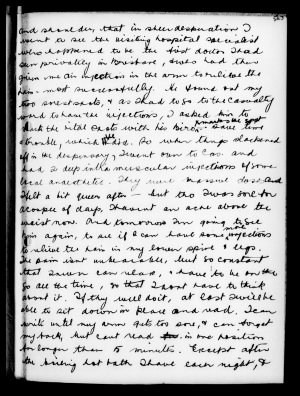 and shoulder, that in sheer desperation I
went to see the visiting hospital specialist
who happened to be the first doctor I had
seen privately in Brisbane, & who had then
given me an injection in the arm to relieve the
pain - most successfully. He found out my
two sorest spots, & as I had to go to the casualty
ward to have the injections, I asked him to
mark the vital spots with his biro.
trouble, which he did. So when things slackened
off in the dispensary, I went over to Cas. and
had 2 deep intramuscular injections of some
local anaesthetic. They were massive doses and
I felt a bit queer after - but tho I was sore for
a couple of days, I haven't an ache above the
waist now. And tomorrow I'm going to see
him again, to see if I can have some more injections
to relieve the pain in my lower spine & legs.
The pain isn't unbearable, but so constant
that I never can relax, & have to be on the
go all the time, so that I don't have to think
about it. If they will do it, at last I will be
able to sit down in peace and read. I can
write until my arm gets too sore, & can forget
my back, but can't read in one position
for longer than 10 minutes. Except after
the boiling hot bath I have each night, &